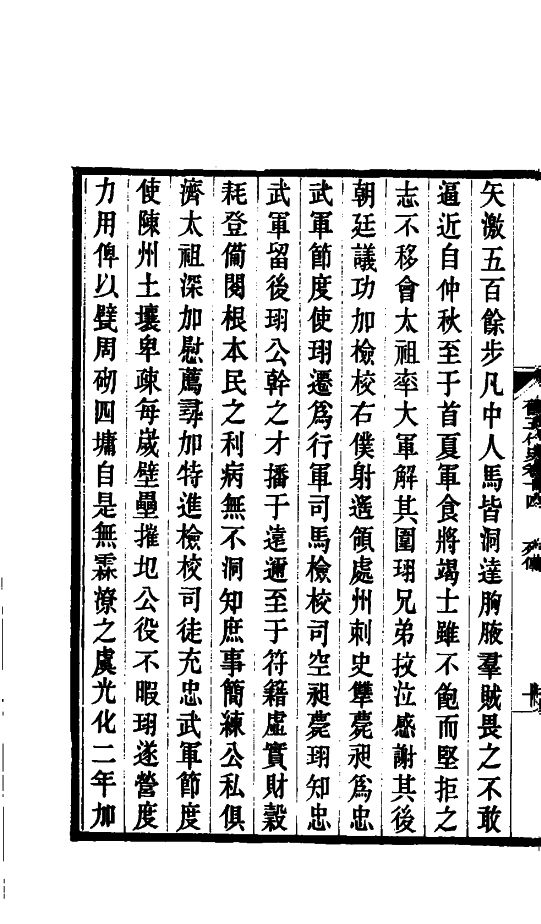 矢激五百餘步凡中人馬皆洞達胸腋羣賊畏之不敢
逼近自仲秋至于首夏軍食將竭士雖不飽而堅拒之
志不移會太祖率大軍解其圍珝兄弟抆泣感謝其後
朝廷議功加檢校右僕射遙領處州刺史犨薨昶爲忠
武軍節度使珝遷爲行軍司馬檢校司空昶薨珝知忠
武軍留後珝公幹之才播于遠邇至于符籍虛實財穀
耗登備閱根本民之利病無不洞知庶事簡練公私俱
濟太祖深加慰薦尋加特進檢校司徒充忠武軍節度
使陳州土壤卑疎每歲壁壘摧圮公役不暇珝遂營度
力用俾以甓周砌四墉自是無霖潦之虞光化二年加